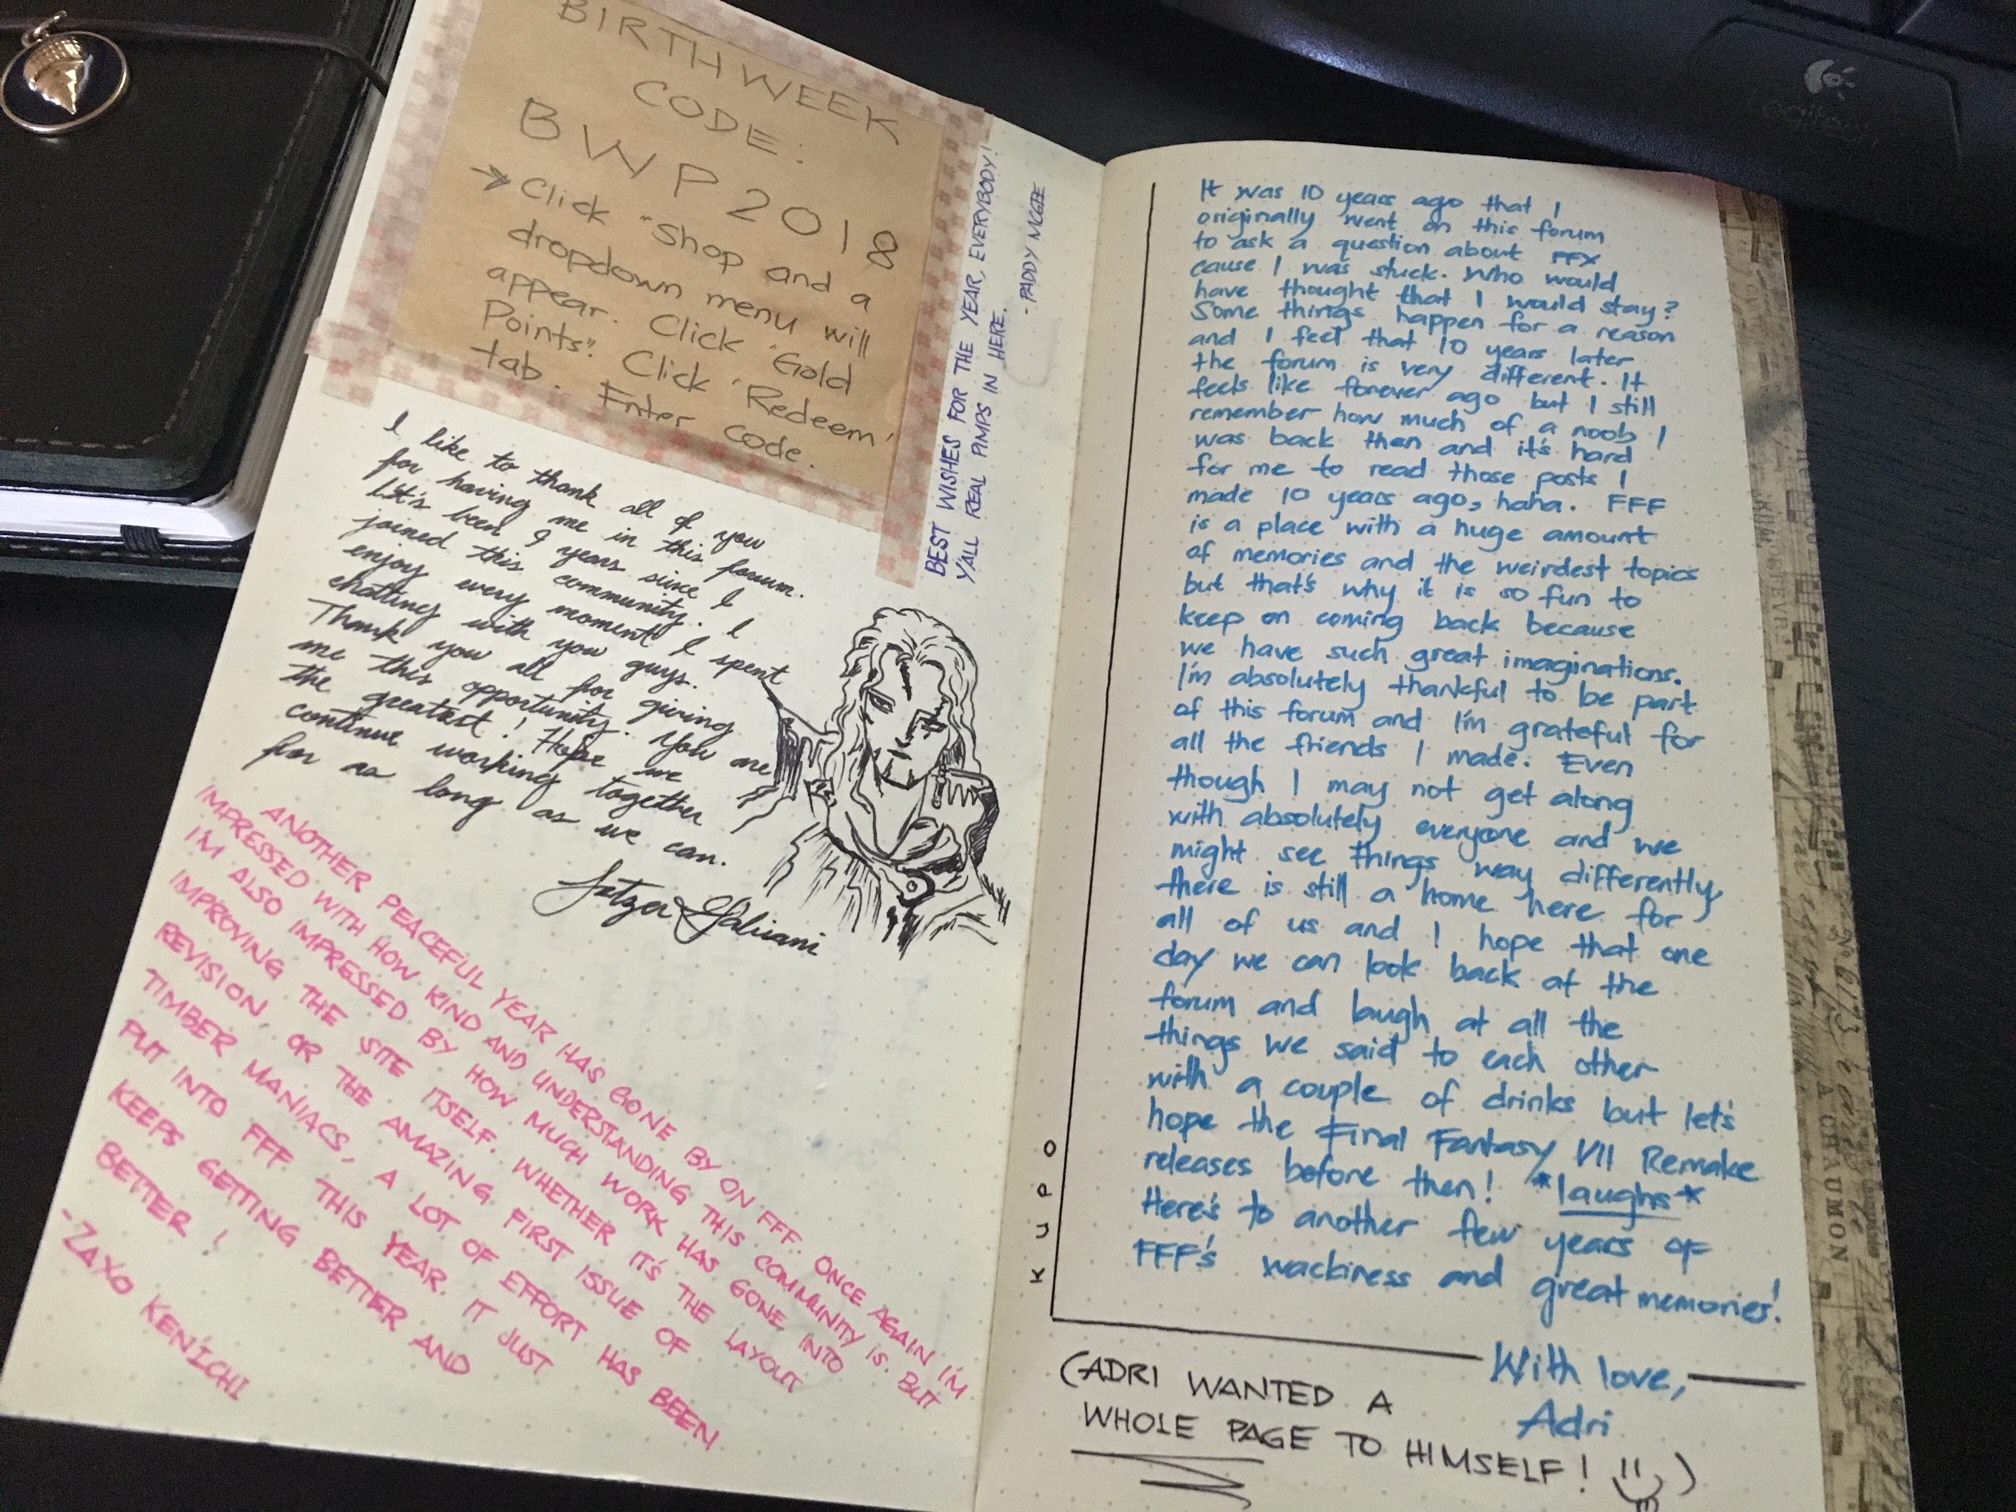 BIRTHWEEK
CODE:
BWP2018
→ Click "Shop and a
dropdown menu will
appear. Click "Gold
Points". Click 'Redeem'
tab. Enter code.
BEST WISHES FOR THE YEAR, EVERYBODY!
Y'ALL REAL PIMPS IN HERE.
- PADDY MCGEE
I like to thank all of you
for having me in this forum.
It's been 9 years since I
joined this community. I
enjoy every moment I spent
chatting with you guys.
Thank you all for giving
me this opportunity. You are
the greatest! Hope we
continue working together
for as long as we can.
ANOTHER PEACEFUL YEAR HAS GONE BY ON FFF. ONCE AGAIN I'M
IMPRESSED WITH HOW KIND AND UNDERSTANDING THIS COMMUNITY IS. BUT
I'M ALSO IMPRESSED BY HOW MUCH WORK HAS GONE INTO
IMPROVING THE SITE ITSELF. WHETHER IT'S THE LAYOUT
REVISION, OR THE AMAZING FIRST ISSUE OF
TIMBER MANIACS, A LOT OF EFFORT HAS BEEN
PUT INTO FFF THIS YEAR. IT JUST
KEEPS GETTING BETTER AND
BETTER!
-ZAXO KEN'ICHI
It was 10 years ago that I
originally went on this forum
to ask a question about FFX
cause I was stuck. Who would
have thought that I would stay?
Some things happen for a reason
and I feel that 10 years later
the forum is very different. It
feels like forever ago but I still
remember how much of a noob I
was back then and it's hard
for me to read those posts I
made 10 years ago, haha. FFF
is a place with a huge amount
of memories and the weirdest topics
but that's why it is so fun to
keep on coming back because
we have such great imaginations.
I'm absolutely thankful to be part
of this forum and I'm grateful for
all the friends I made. Even
though I may not get along
with absolutely everyone and we
might see things way differently,
there is still a home here for
all of us and I hope that one
day we can look back at the
forum and laugh at all the
things we said to each other
with a couple of drinks but let's
hope the Final Fantasy VII Remake
releases before then! *laughs*
Here's to another few years of
FFF's wackiness and great memories!
With love,
Adri
KUPO
(ADRI WANTED A
WHOLE PAGE TO HIMSELF! )
Logitech
A CHAUMON